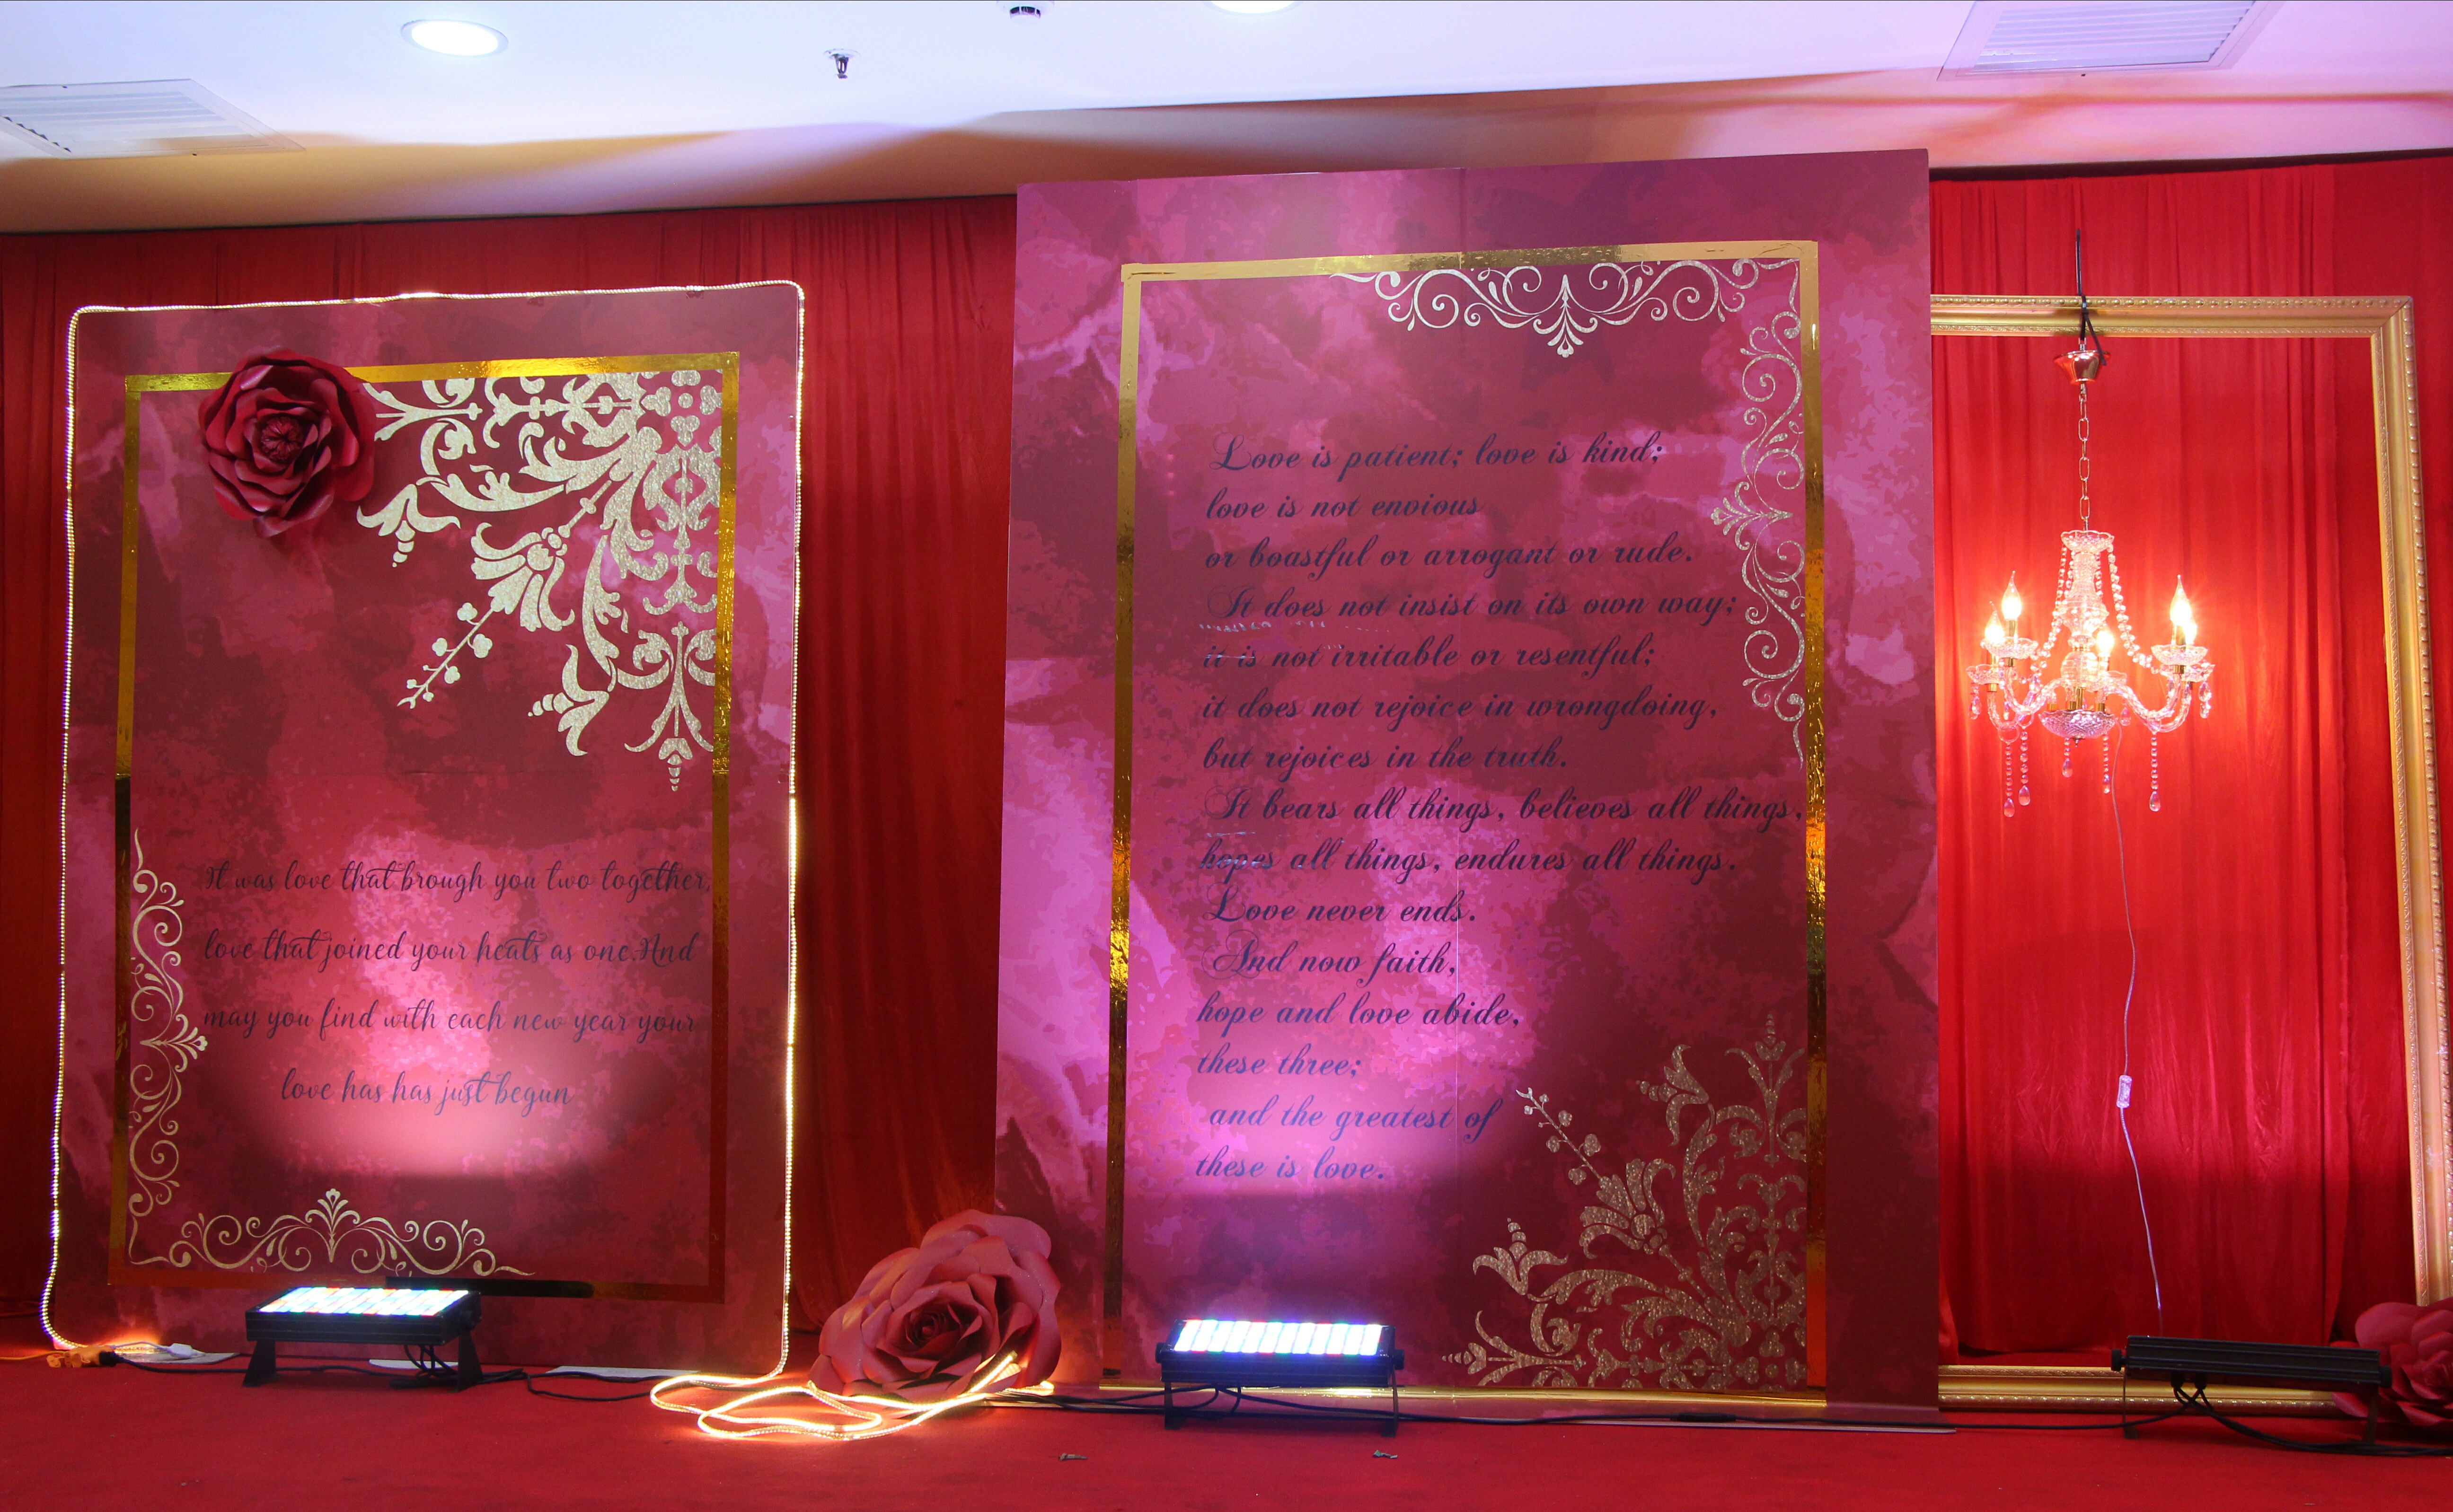 It was love that brough you two together,
love that joined your heats as one.And
may you find with each new year your
love has has just begun
Love is patient; love is kind;
love is not envious
or boastful or arrogant or rude.
It does not insist on its own way;
it is not irritable or resentful;
it does not rejoice in wrongdoing,
but rejoices in the truth.
It bears all things, believes all things,
hopes all things, endures all things.
Love never ends.
And now faith,
hope and love abide,
these three;
and the greatest of
these is love.